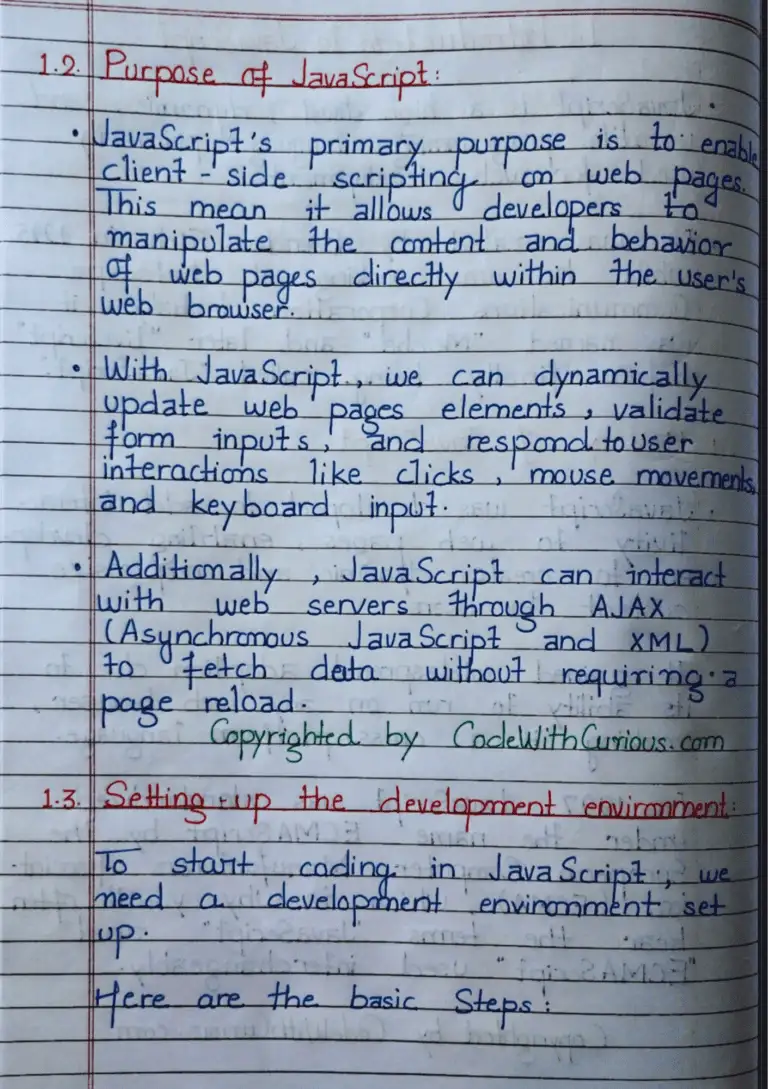 1.2. Purpose of JavaScript:
• JavaScript's primary purpose is to enable
client - side scripting on web pages.
This mean it allows developers to
manipulate the content and behavior
of web pages directly within the user's
web browser.
• With JavaScript, we can dynamically
update web pages elements, validate
form inputs, and respond to user
interactions like clicks, mouse movements,
and keyboard input.
• Additionally, JavaScript can interact
with web servers through AJAX
(Asynchronous JavaScript and XML)
to fetch data without requiring a
page reload.
Copyrighted by CodeWithCurious.com
1.3. Setting up the development environment:
To start coding in JavaScript, we
need a development environment set
up.
Here are the basic Steps: